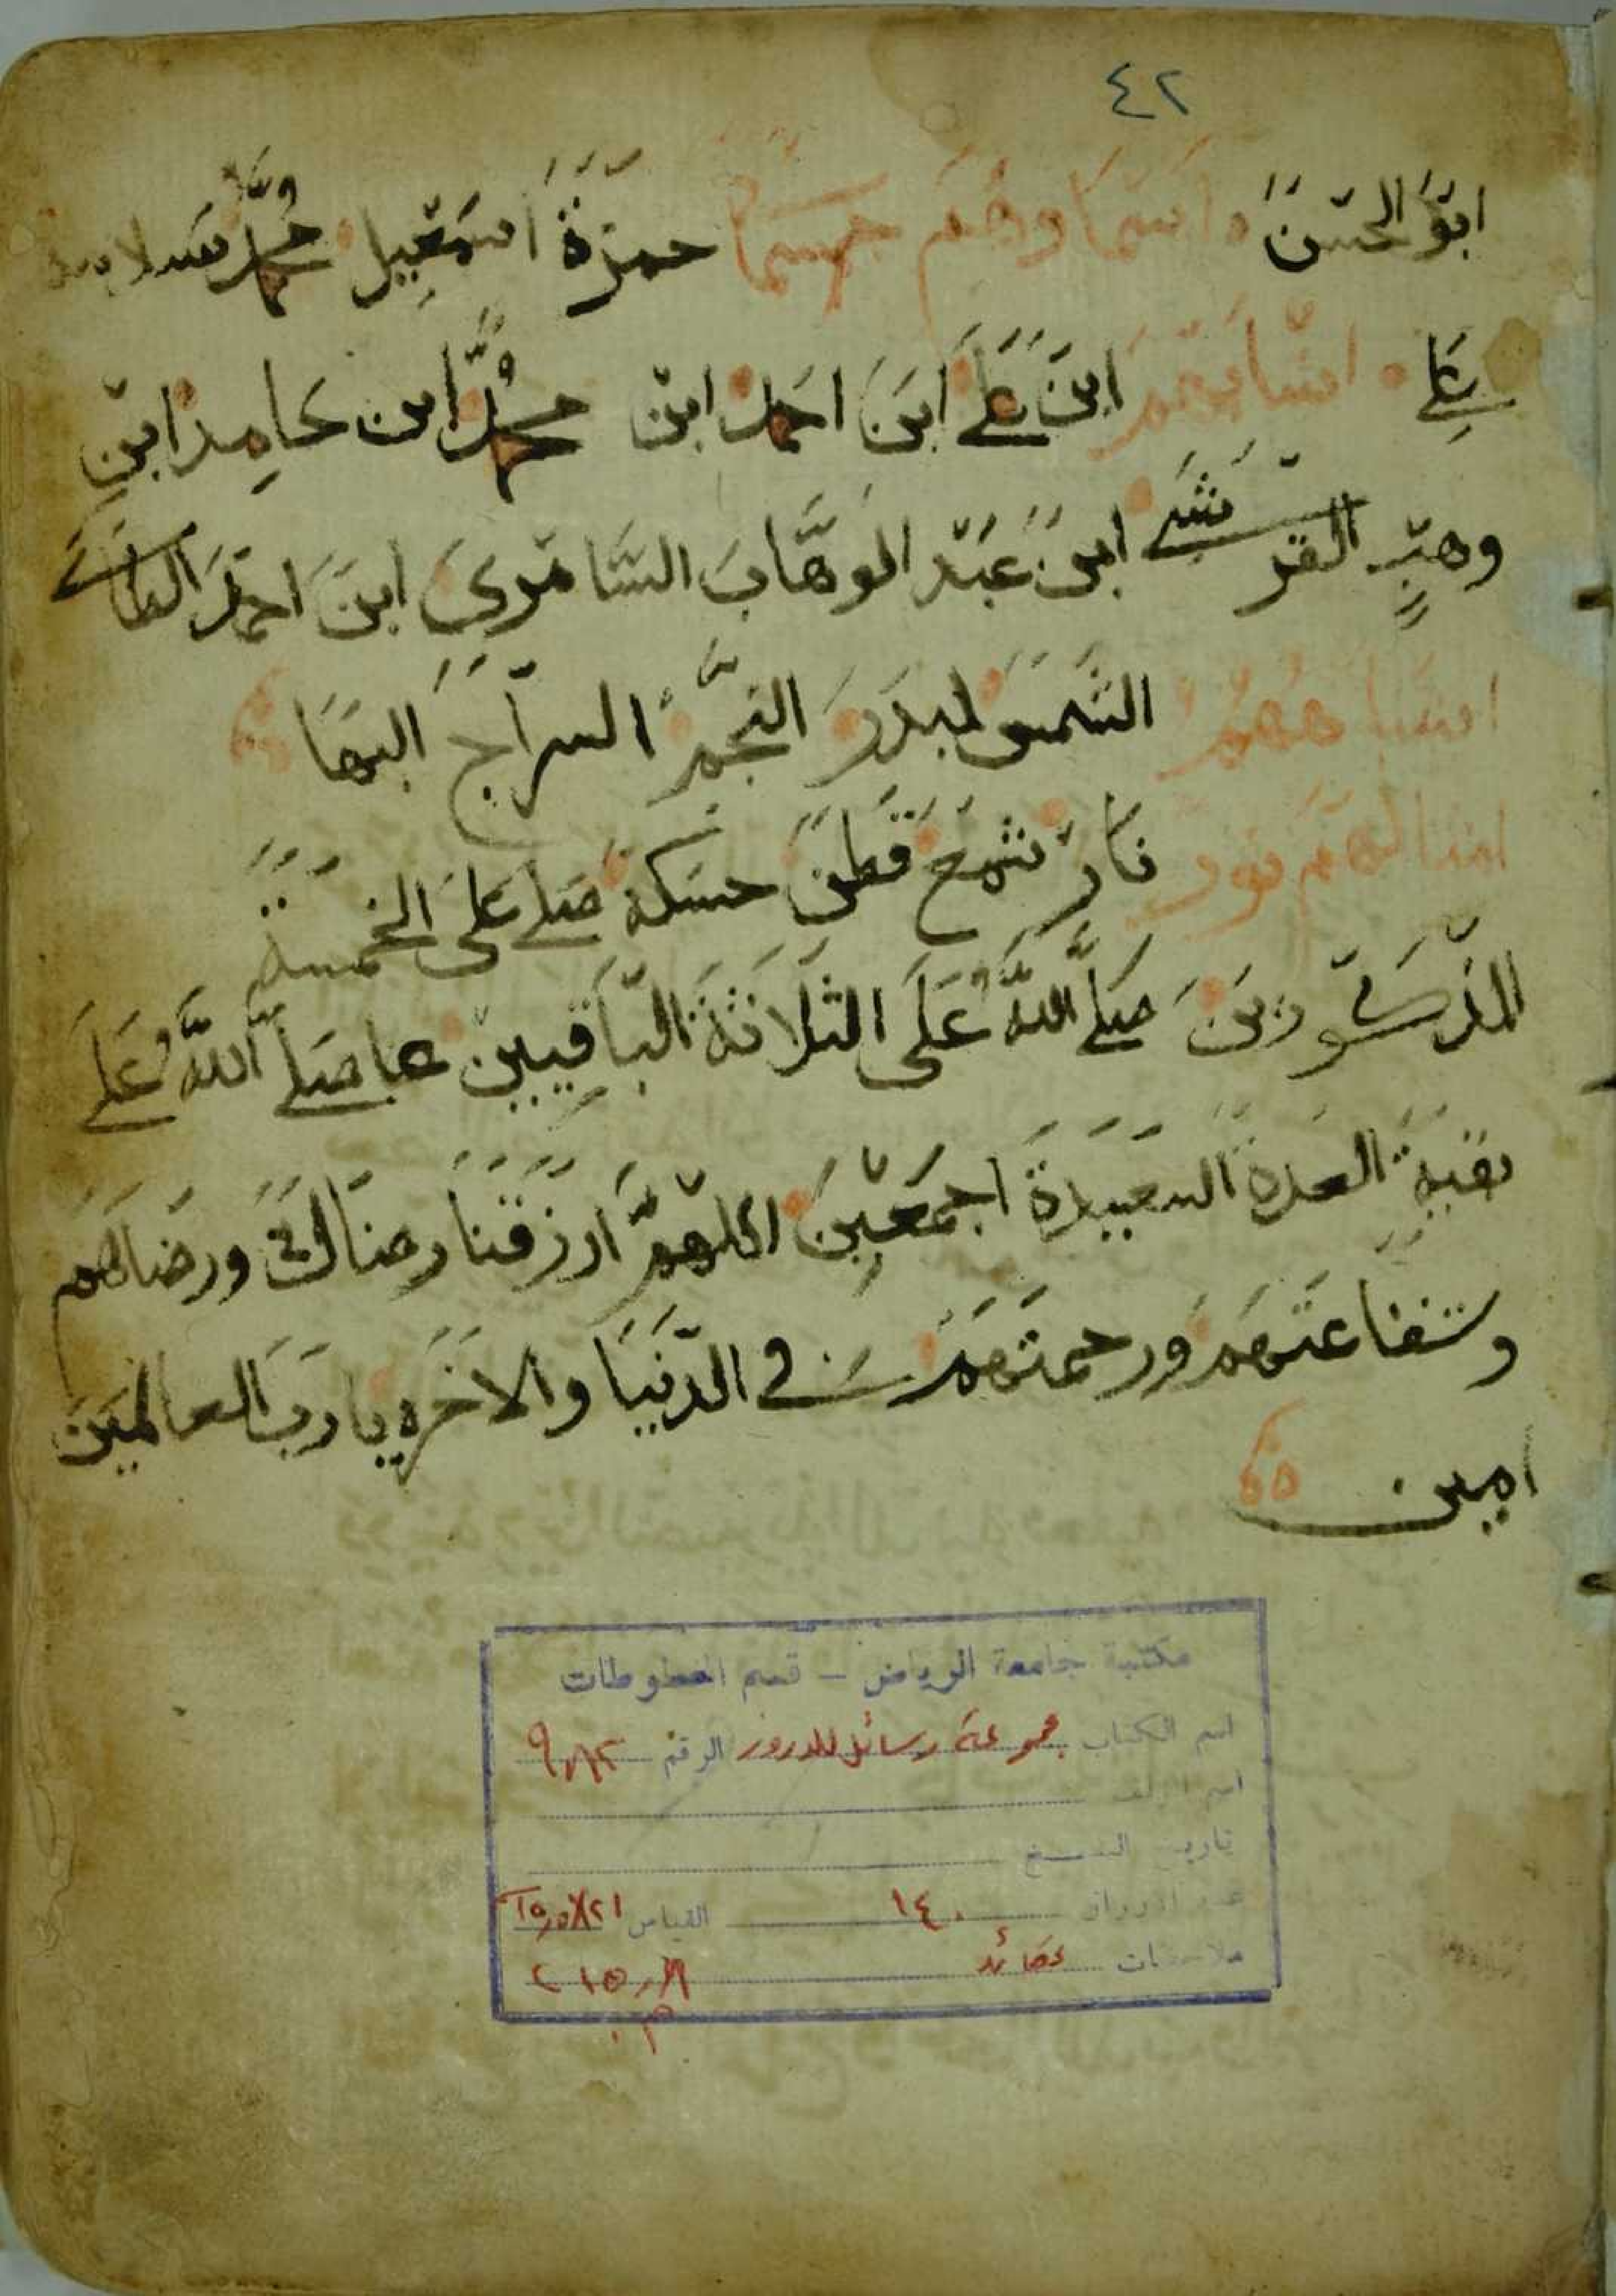 ٤٢
ابو الحسن اسماوهم جسما حمزة اسمعيل محمد سلامه
علي انسابهم ابن علي ابن احمد ابن محمد ابن حامد ابن
وهب القرشي ابن عبد الوهاب السامري ابن احمد الطائي
اشباههم الشمس لبدر النجم السراج البها
امثالهم نور نار شمع قطن حسكه صلي على الخمسة
المذكورين صلى الله على الثلاثة الباقيين عا صلى الله على
بقية العدة السعيدة اجمعين اللهم ارزقنا رضاك ورضاهم
وشفاعتهم ورحمتهم في الدنيا والاخره يا رب العالمين
امين
مكتبة جامعة الرياض - قسم المخطوطات
اسم الكتاب مجموعة رسائل للدروز الرقم
اسم المؤلف
تاريخ النسخ
عدد الاوراق ١٤٠ القياس ٢١×١٥٫٥
ملاحظات عقائد